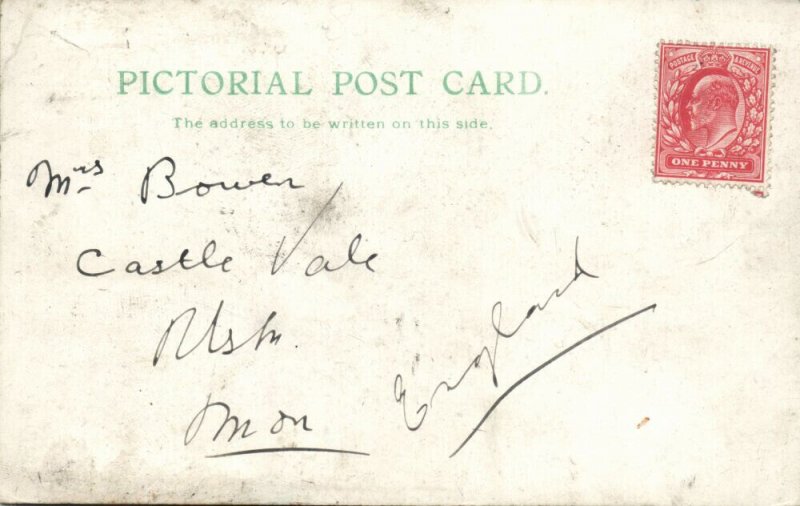 PICTORIAL POST CARD.
The address to be written on this side.
POSTAGE & REVENUE
ONE PENNY
Mrs Bowen
Castle Vale
Usk.
Mon
England